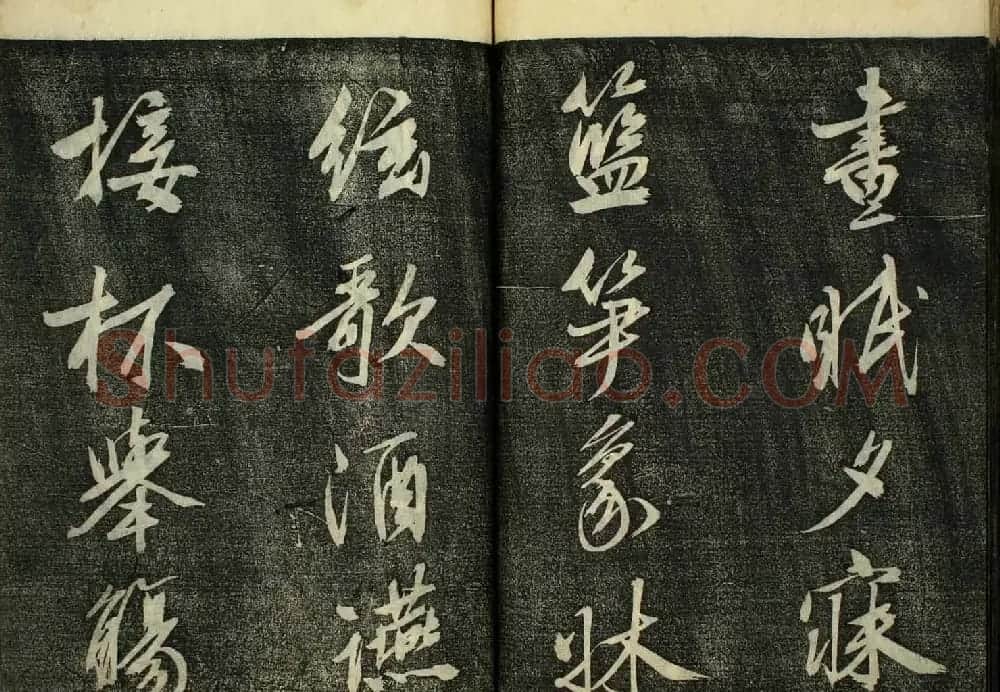 晝眠夕寐
籃笋象牀
絃歌酒讌
接杯舉觴
Shufaziliao.COM